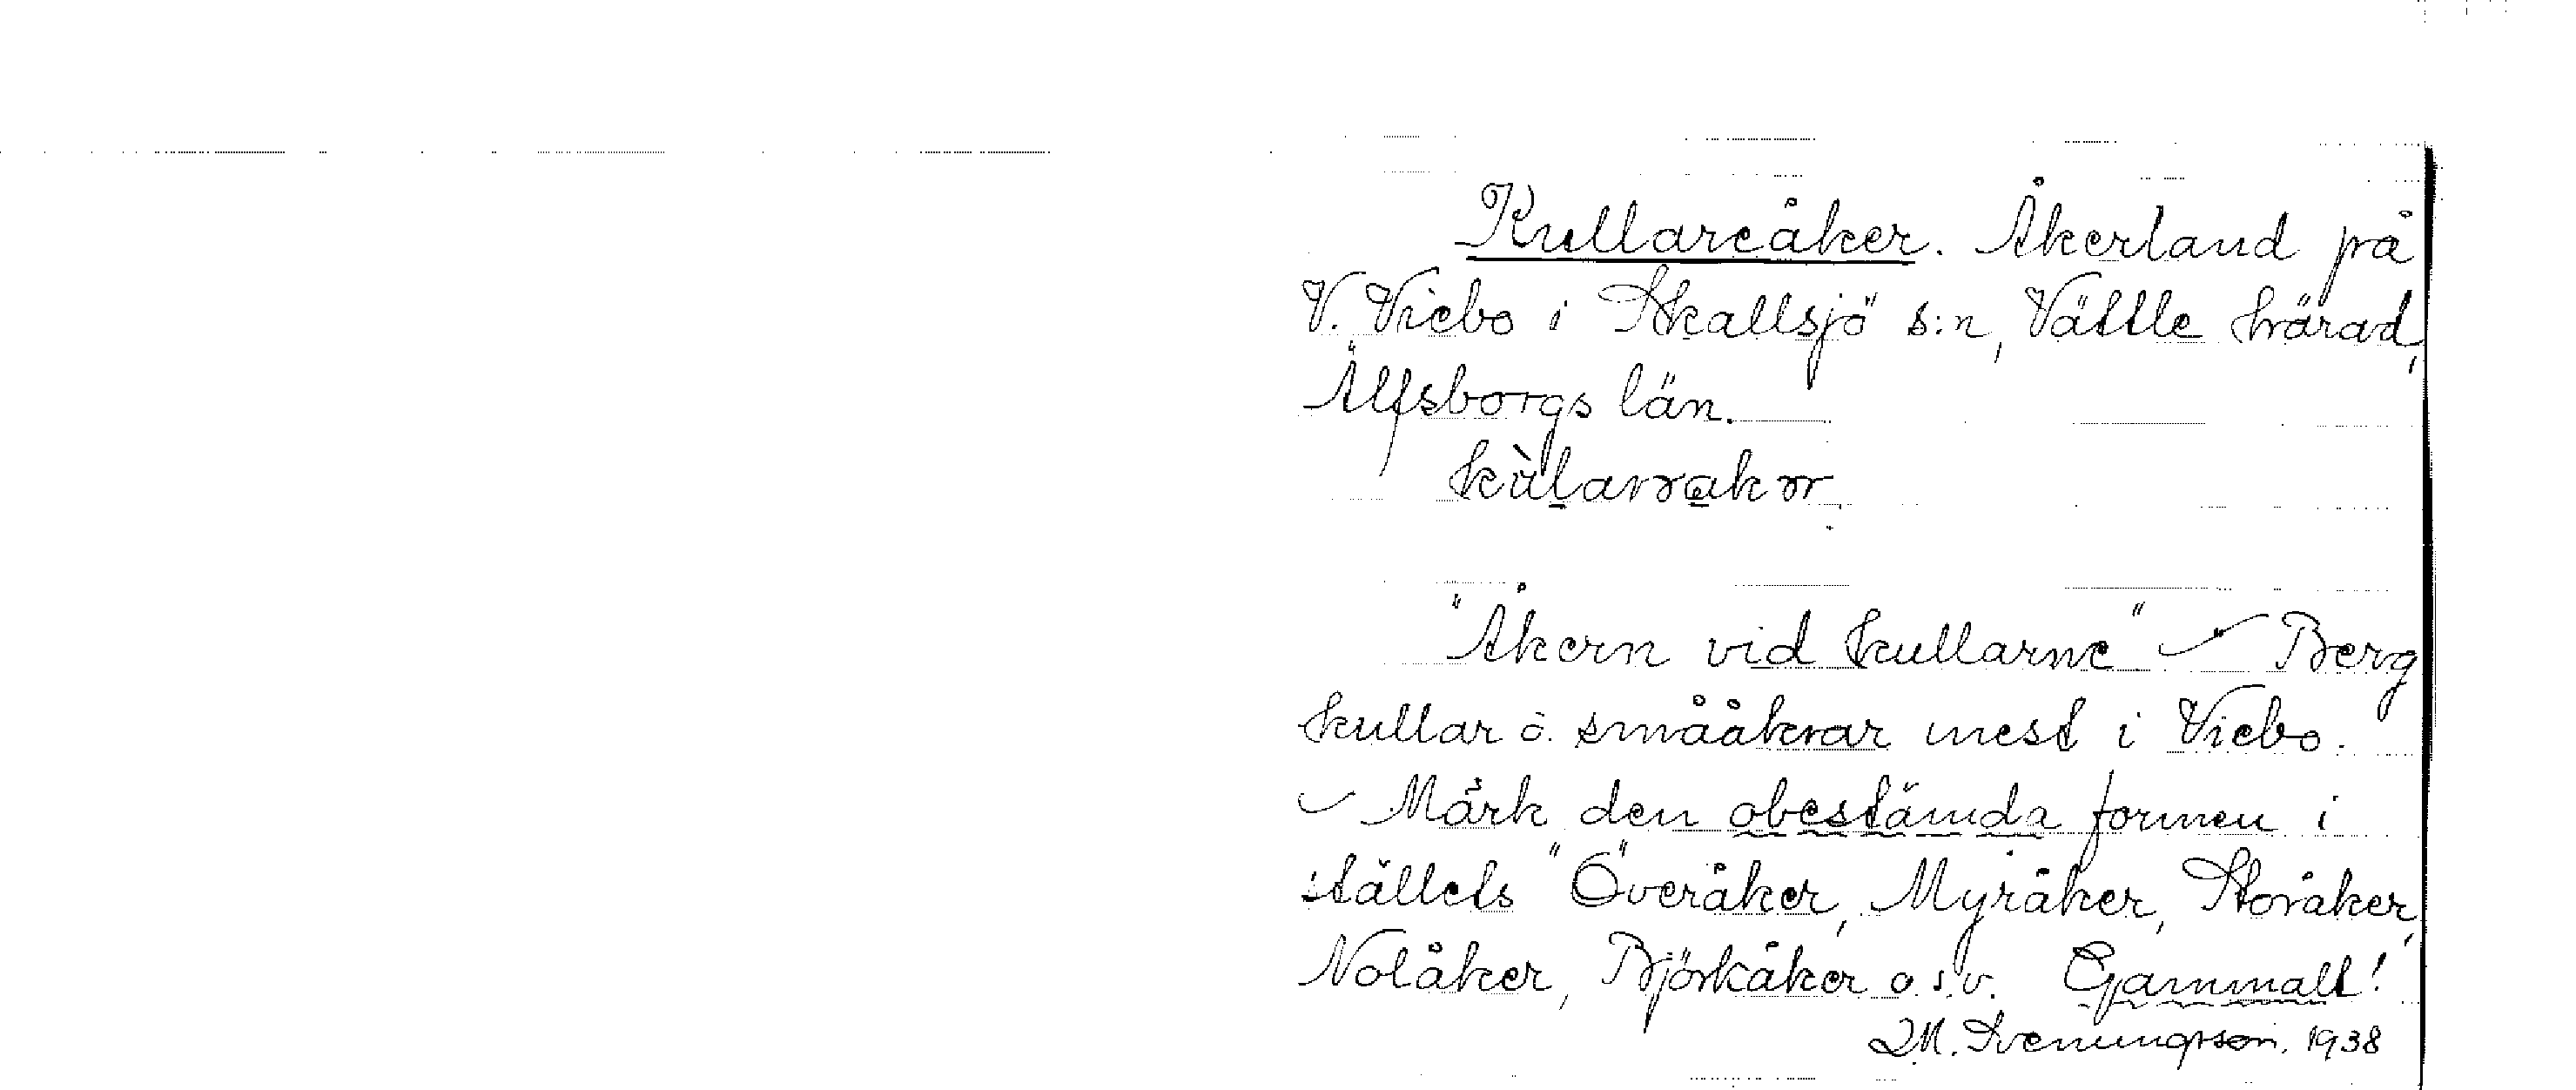 Kullareåker. Åkerland på
V. Viebo i Skallsjö s:n, Vättle härad,
Älfsborgs län.
"Åkern vid kullarne" – Berg
kullar o. smååkrar mest i Viebo.
– Märk den obestämda formen i
stället "Överåker, Myråker, Storåker,
Nolåker, Björkåker o.s.v. Gammalt!
Svenungsson. 1938